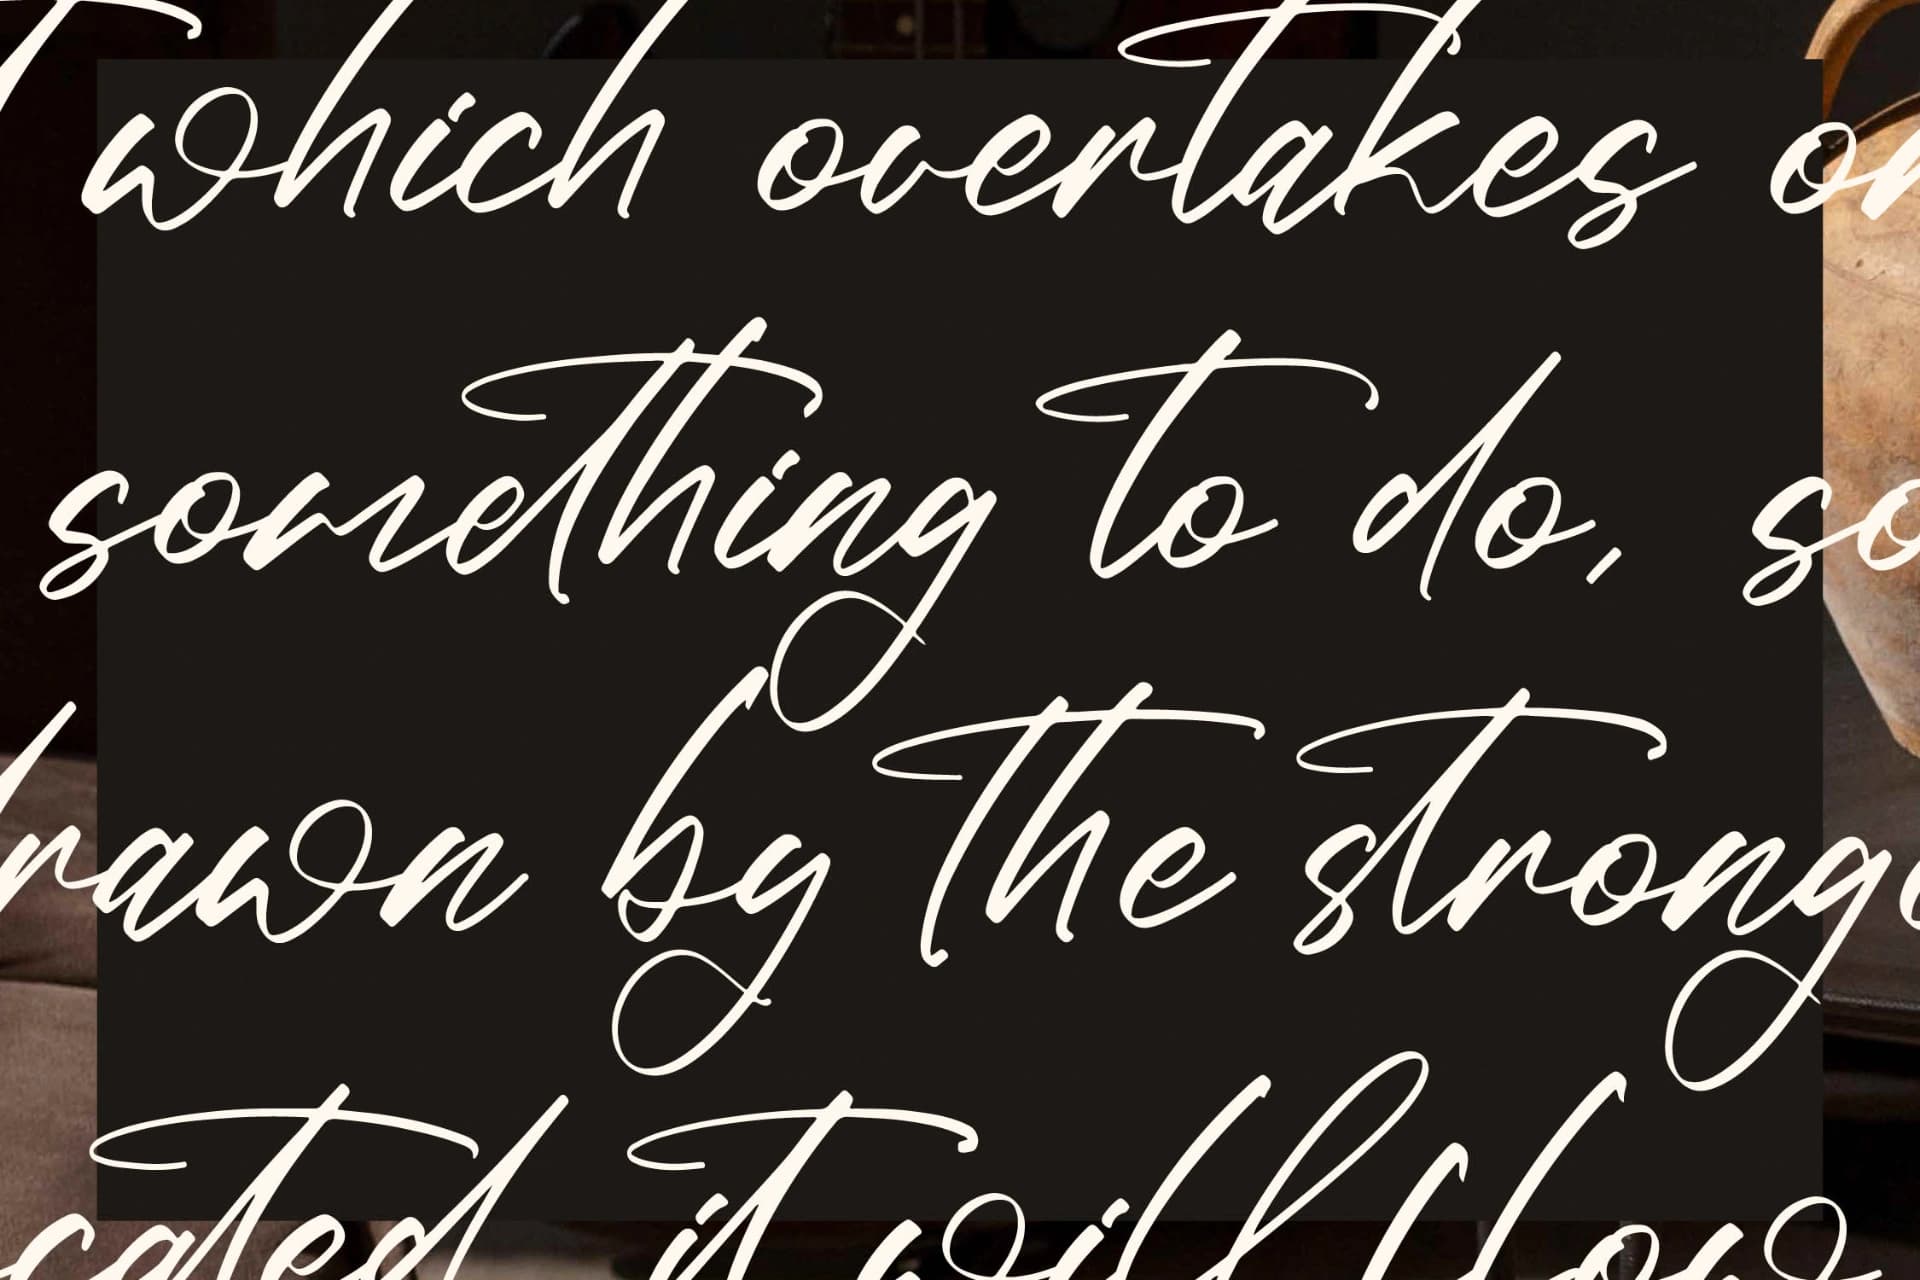 which overtakes
something to do, so
drawn by the stronge
cated it will flow